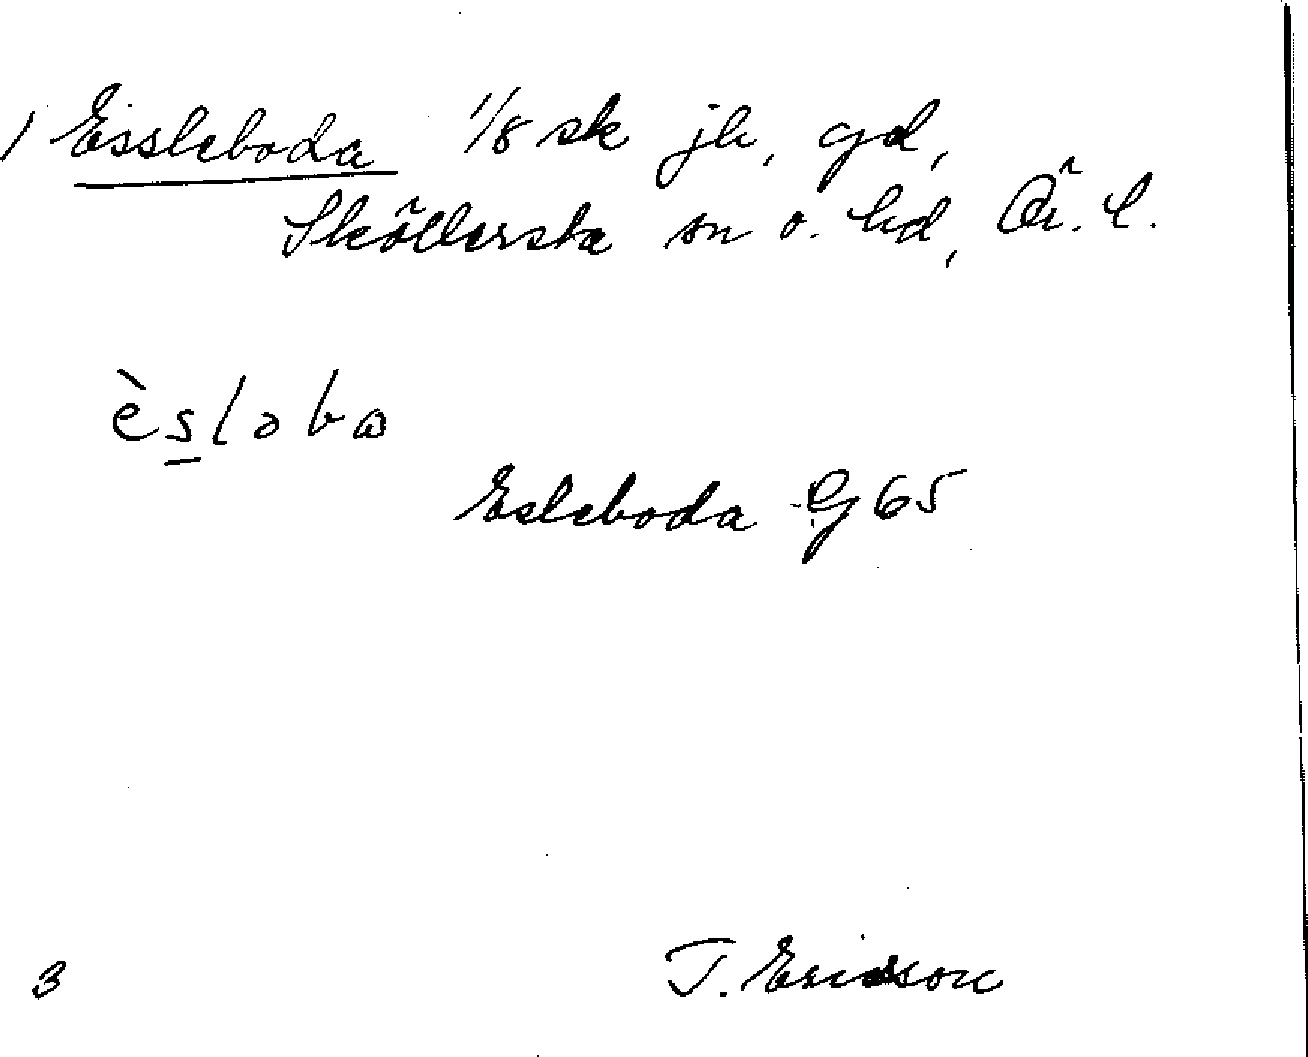 1 Essleboda 1/8 sk jb, gd,
Sköllersta sn o. hd, Ör. l.
èsloba
Esleboda G 65
3 T. Ericsson